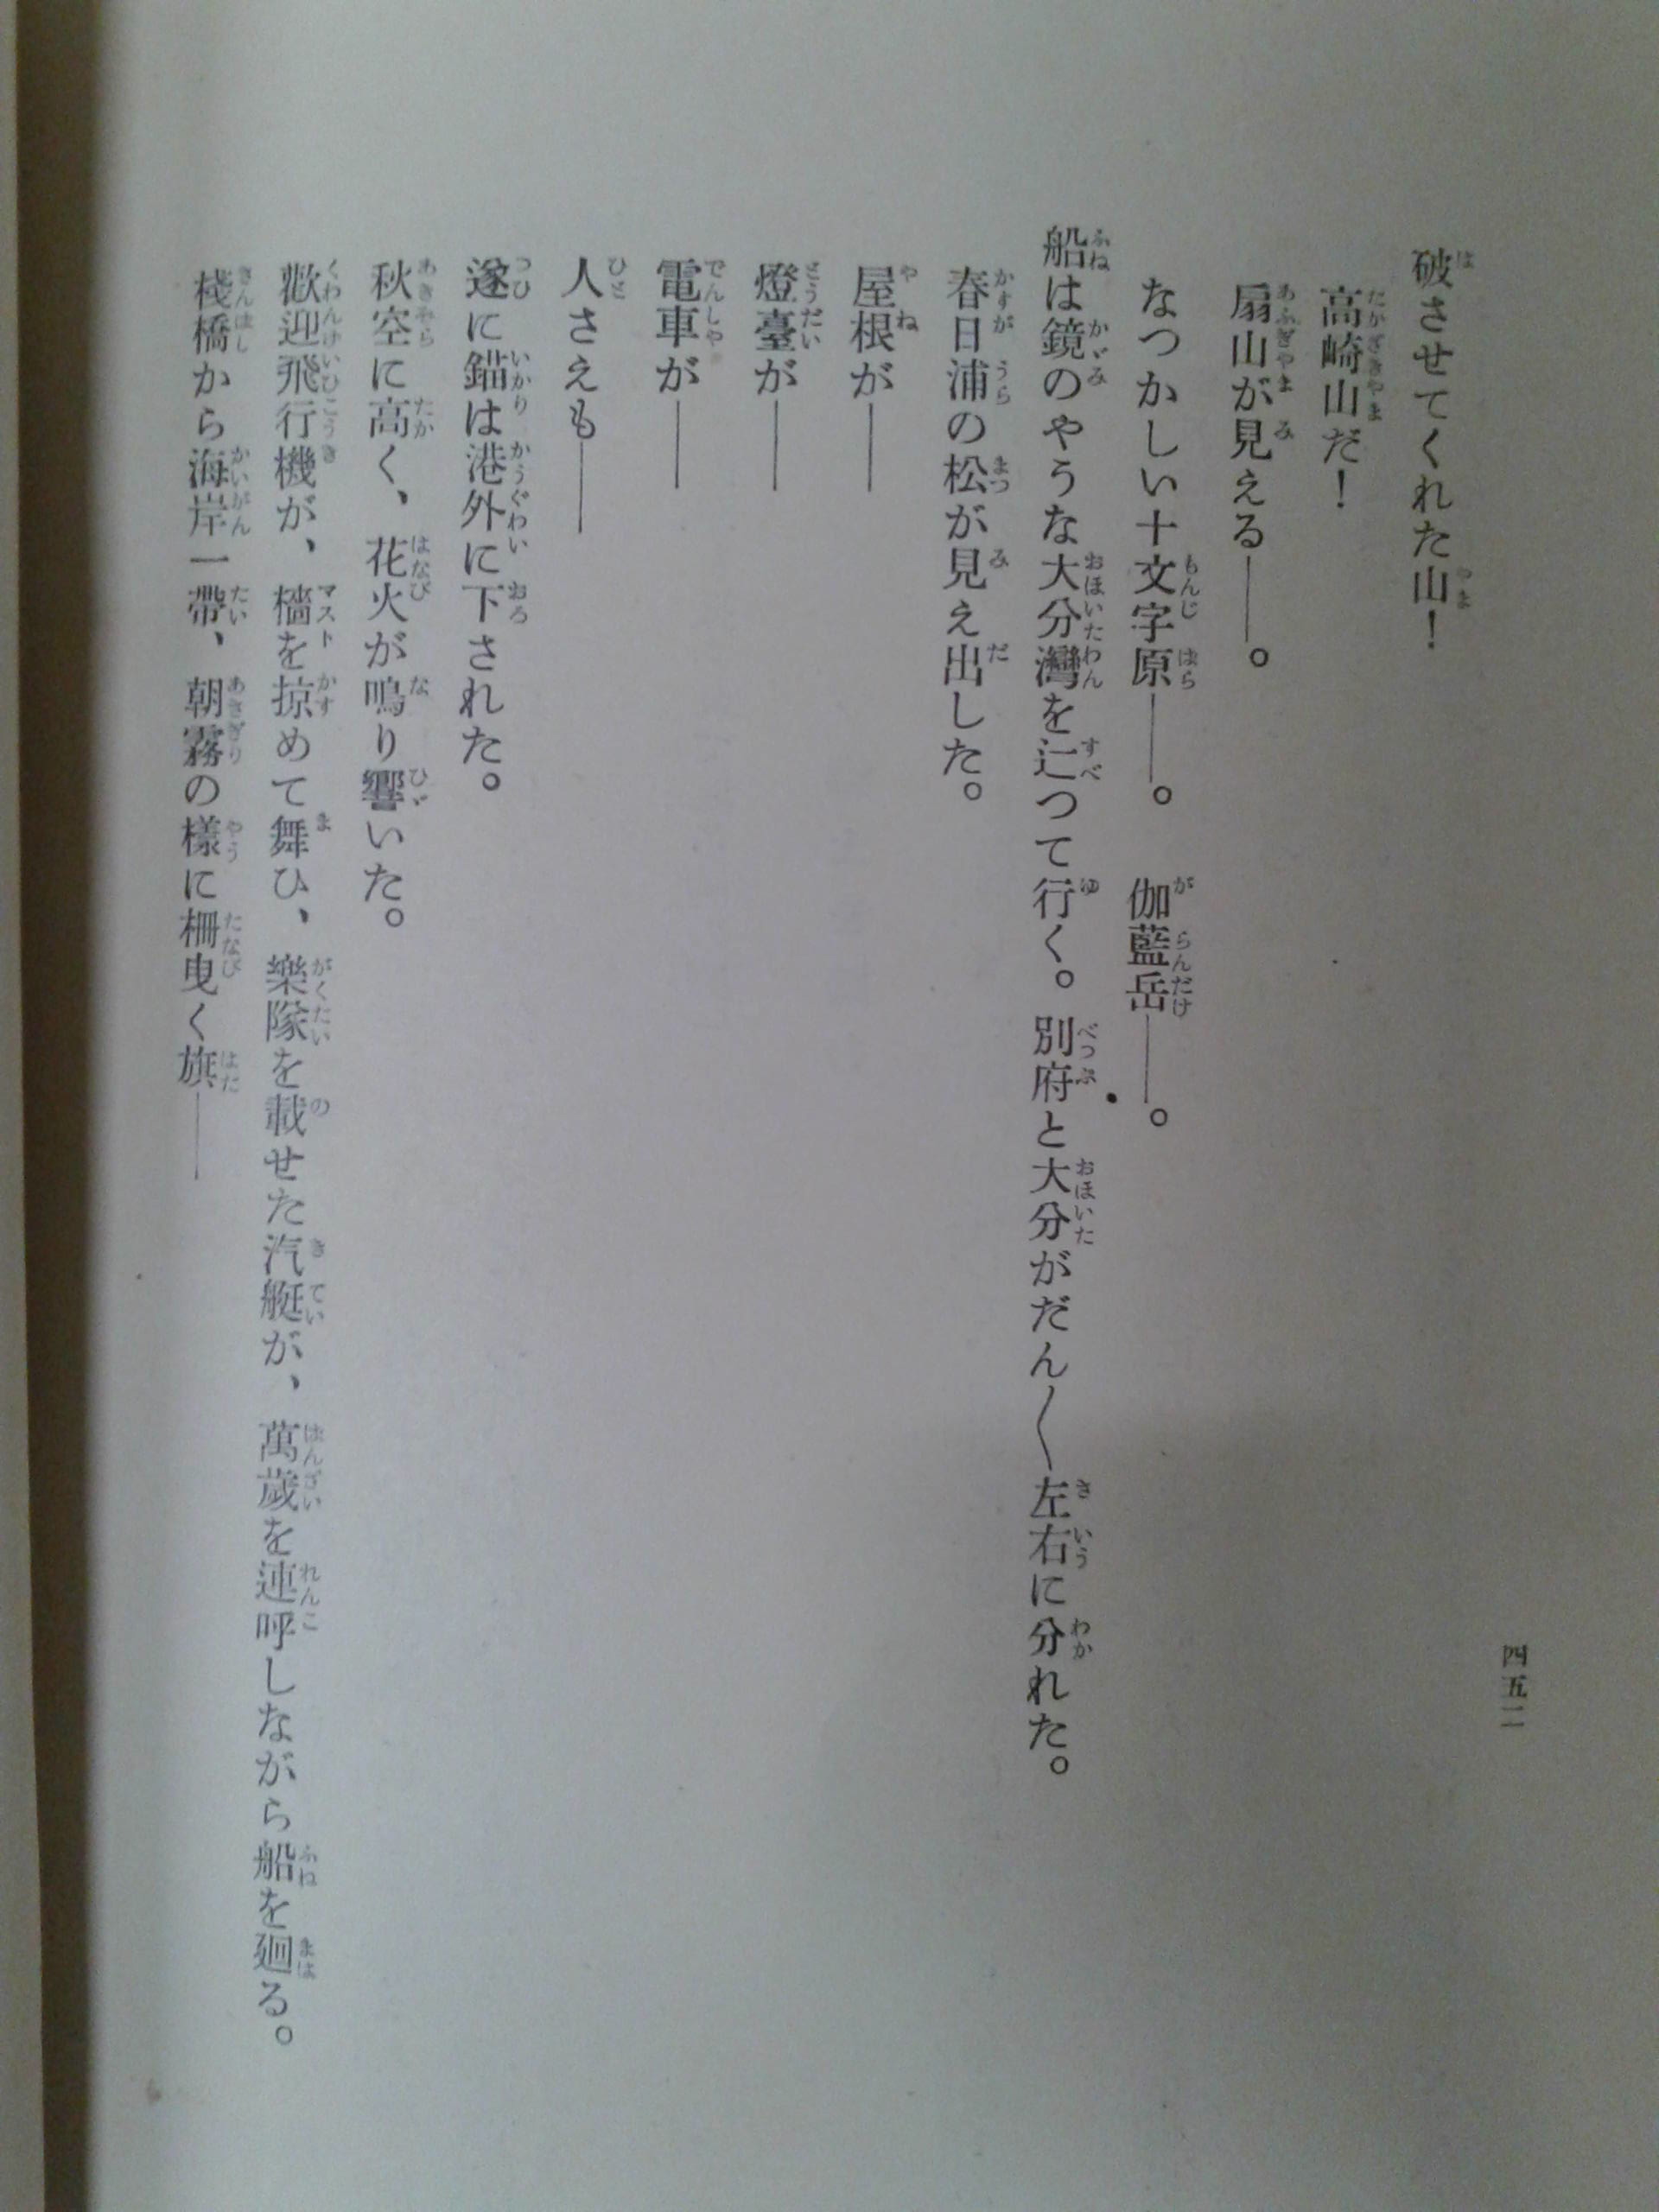 破させてくれた山！
高崎山だ！
扇山が見える――。
なつかしい十文字原――。　伽藍岳――。
船は鏡のやうな大分灣を辷つて行く。別府と大分がだん〱左右に分れた。
春日浦の松が見え出した。
屋根が――
燈臺が――
電車が――
人さえも――
遂に錨は港外に下された。
秋空に高く、花火が鳴り響いた。
歡迎飛行機が、檣を掠めて舞ひ、樂隊を載せた汽艇が、萬歲を連呼しながら船を廻る。
棧橋から海岸一帶、朝霧の樣に柵曳く旗――
四五二